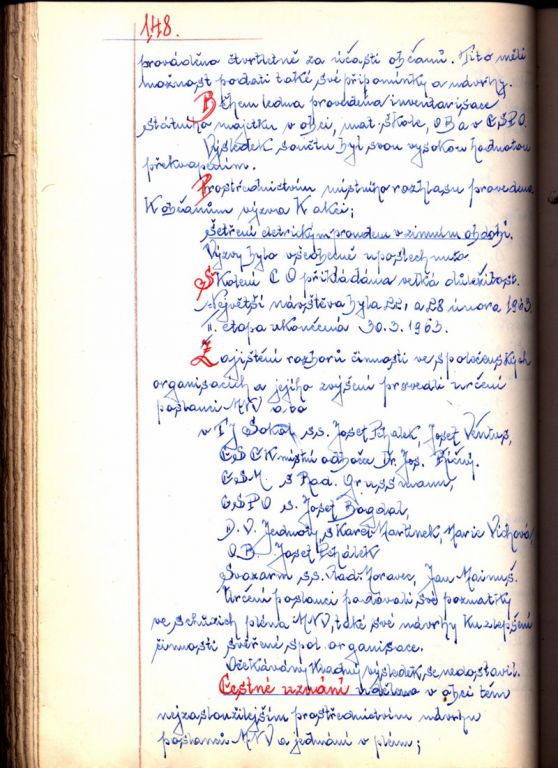 148.
prováděno čtvrtletně za účasti občanů. Tito měli
možnost podati také své připomínky a návrhy.
Během ledna provedena inventarisace
státního majetku v obci, mat. škole, OB a v ČSPO.
Výsledek součtu byl svou vysokou hodnotou
překvapením.
Prostřednictvím místního rozhlasu provedena
K občanům výzva K akci;
šetření elektrickým proudem v zimním období.
Výzvy bylo všeobecně uposlechnuto.
Školení C O přikládána velká důležitost.
Největší návštěva byla 22, a 28 února 1963.
II. etapa ukončena 30. 3. 1963.
Zajištění rozborů činnosti ve společenských
organisacích a jejího zvýšení provedli určení
poslanci MNV a to
v TJ Sokol s.s. Josef Pchálek, Josef Ventus,
ČSČK místní odbočce Dr. Jos.
ČSM s Rad. Grussmann,
ČSPO s. Josef Bogdal,
D. V. Jednoty s Karel Martinek, Marie Vichová,
O.B. Josef Pchálek
Svazarm s.s. Vlad. Moravec, Jan Mainuš.
Určení poslanci podávali své poznatky
ve schůzích pléna MNV, také své návrhy Ku zlepšení
činnosti svěřené spol. organisace.
Očekávaný Kladný výsledek, se nedostavil.
Čestné uznání uděleno v obci těm
nejzasloužilejším prostřednictvím návrhu
poslanců MNV a jednání v plénu;